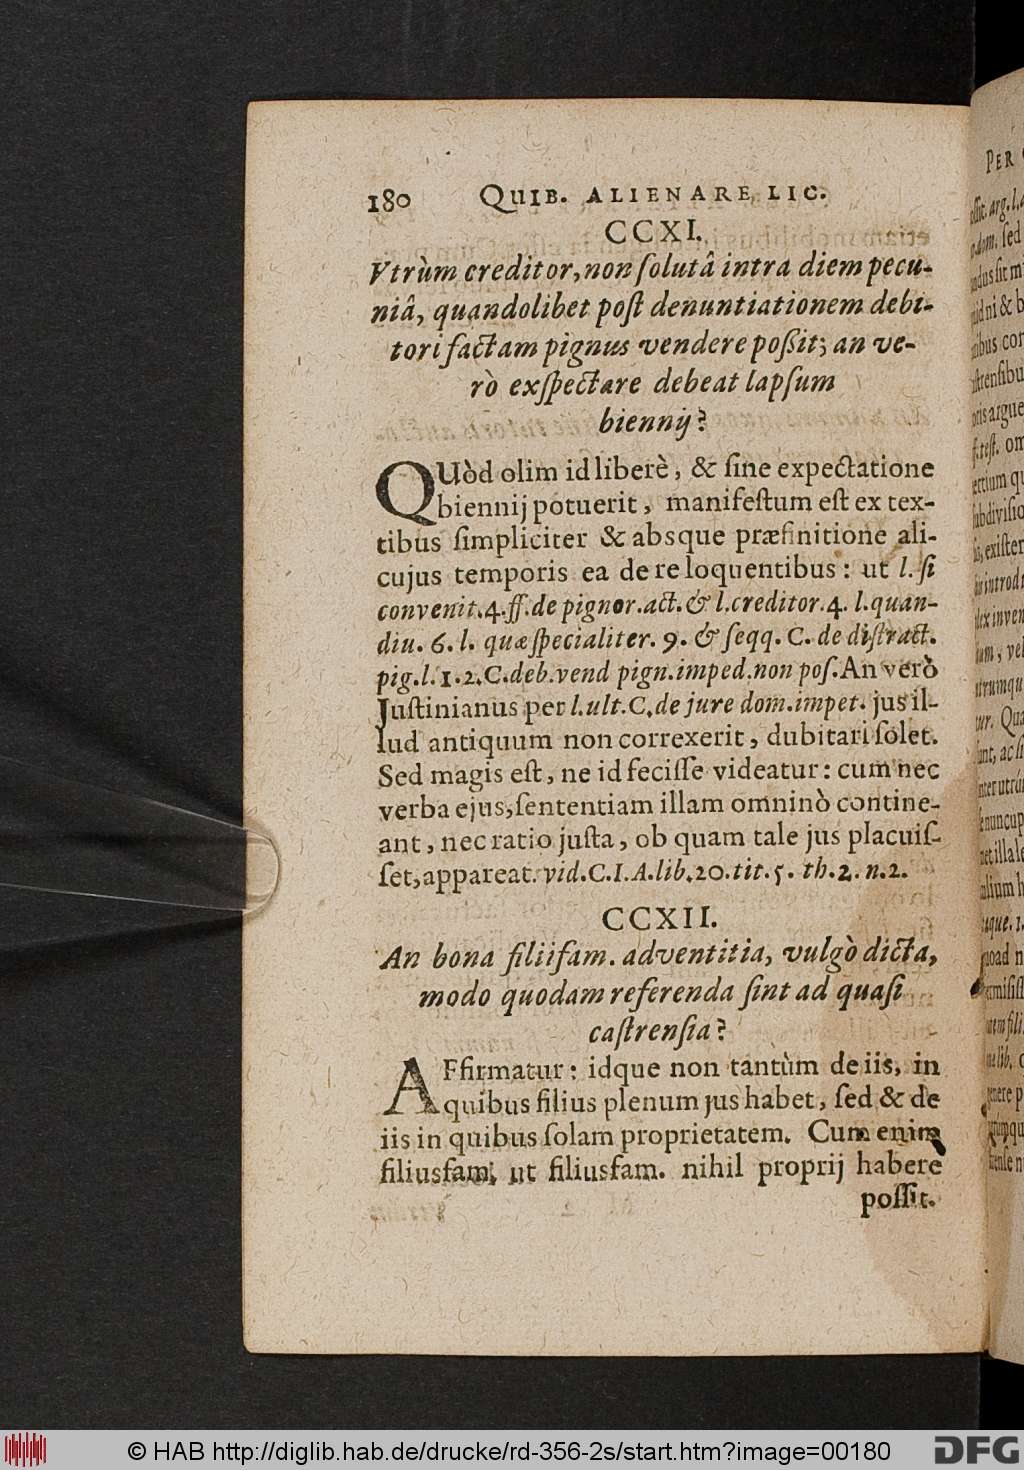 180 QUIB. ALIENARE LIC.
CCXI.
Vtrùm creditor, non ſolutâ intra diem pecu-
niâ, quandolibet poſt denuntiationem debi-
tori factam pignus vendere poßit; an ve-
rò exſpectare debeat lapſum
biennij?
QUòd olim id liberè, & ſine expectatione
biennij potuerit, manifeſtum eſt ex tex-
tibus ſimpliciter & absque præfinitione ali-
cujus temporis ea de re loquentibus: ut l. ſi
convenit. 4. ff. de pignor. act. & l. creditor. 4. l. quan-
diu. 6. l. quæ ſpecialiter. 9. & ſeqq. C. de diſtract.
pig. l. 1. 2. C. deb. vend pign. imped. non poſ. An verò
Juſtinianus per l. ult. C. de jure dom. impet. jus il-
lud antiquum non correxerit, dubitari ſolet.
Sed magis eſt, ne id feciſſe videatur: cum nec
verba ejus, ſententiam illam omninò contine-
ant, nec ratio juſta, ob quam tale jus placuiſ-
ſet, appareat. vid. C. I. A. lib. 20. tit. 5. th. 2. n. 2.
CCXII.
An bona filiifam. adventitia, vulgò dicta,
modo quodam referenda ſint ad quaſi
caſtrenſia?
AFfirmatur: idque non tantùm de iis, in
quibus filius plenum jus habet, ſed & de
iis in quibus ſolam proprietatem. Cum enim
filiusfam. ut filiusfam. nihil proprij habere
poſſit.
PER
© HAB http://diglib.hab.de/drucke/rd-356-2s/start.htm?image=00180
DFG